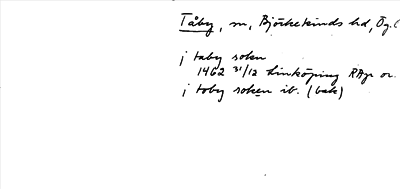 Tåby, sn, Björkekinds hd, Ög.
j taby sokn
1462 31/12 Linköping RAp or.
j toby soken ib. (bak)